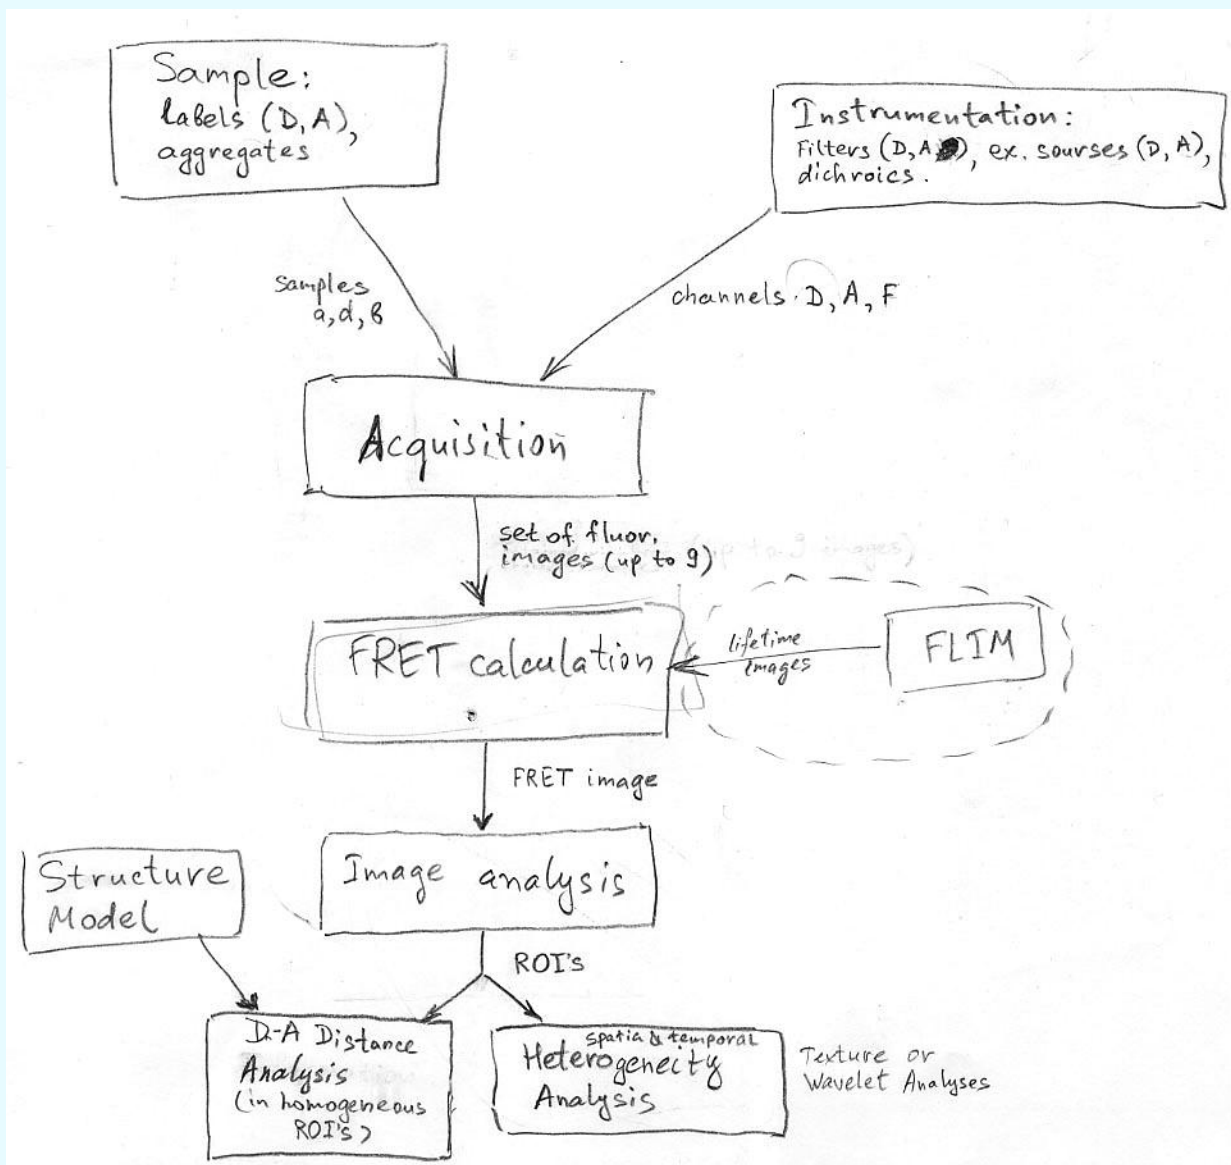 Sample:
Labels (D, A),
aggregates
Instrumentation:
Filters (D, A), ex. sourses (D, A),
dichroics.
samples
a, d, B
channels. D, A, F
Acquisition
set of fluor.
images (up to 9)
FRET calculation
lifetime
images
FLIM
FRET image
Image analysis
Structure
Model
ROI's
D-A Distance
Analysis
(in homogeneous
ROI's)
spatia & temporal
Heterogeneity
Analysis
Texture or
Wavelet Analyses